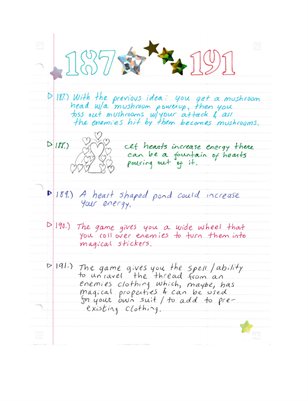 187 191
187.) With the previous idea: you get a mushroom
head w/a mushroom powerup, then you
toss out mushrooms w/your attack & all
the enemies hit by them becomes mushrooms.
188.) hearts increase energy there
can be a fountain of hearts
pouring out of it.
189.) A heart shaped pond could increase
your energy.
190.) The game gives you a wide wheel that
you roll over enemies to turn them into
magical stickers.
191.) The game gives you the spell/ability
to unravel the thread from an
enemies clothing which, maybe, has
magical properties & can be used
on your own suit/to add to pre-
existing clothing.